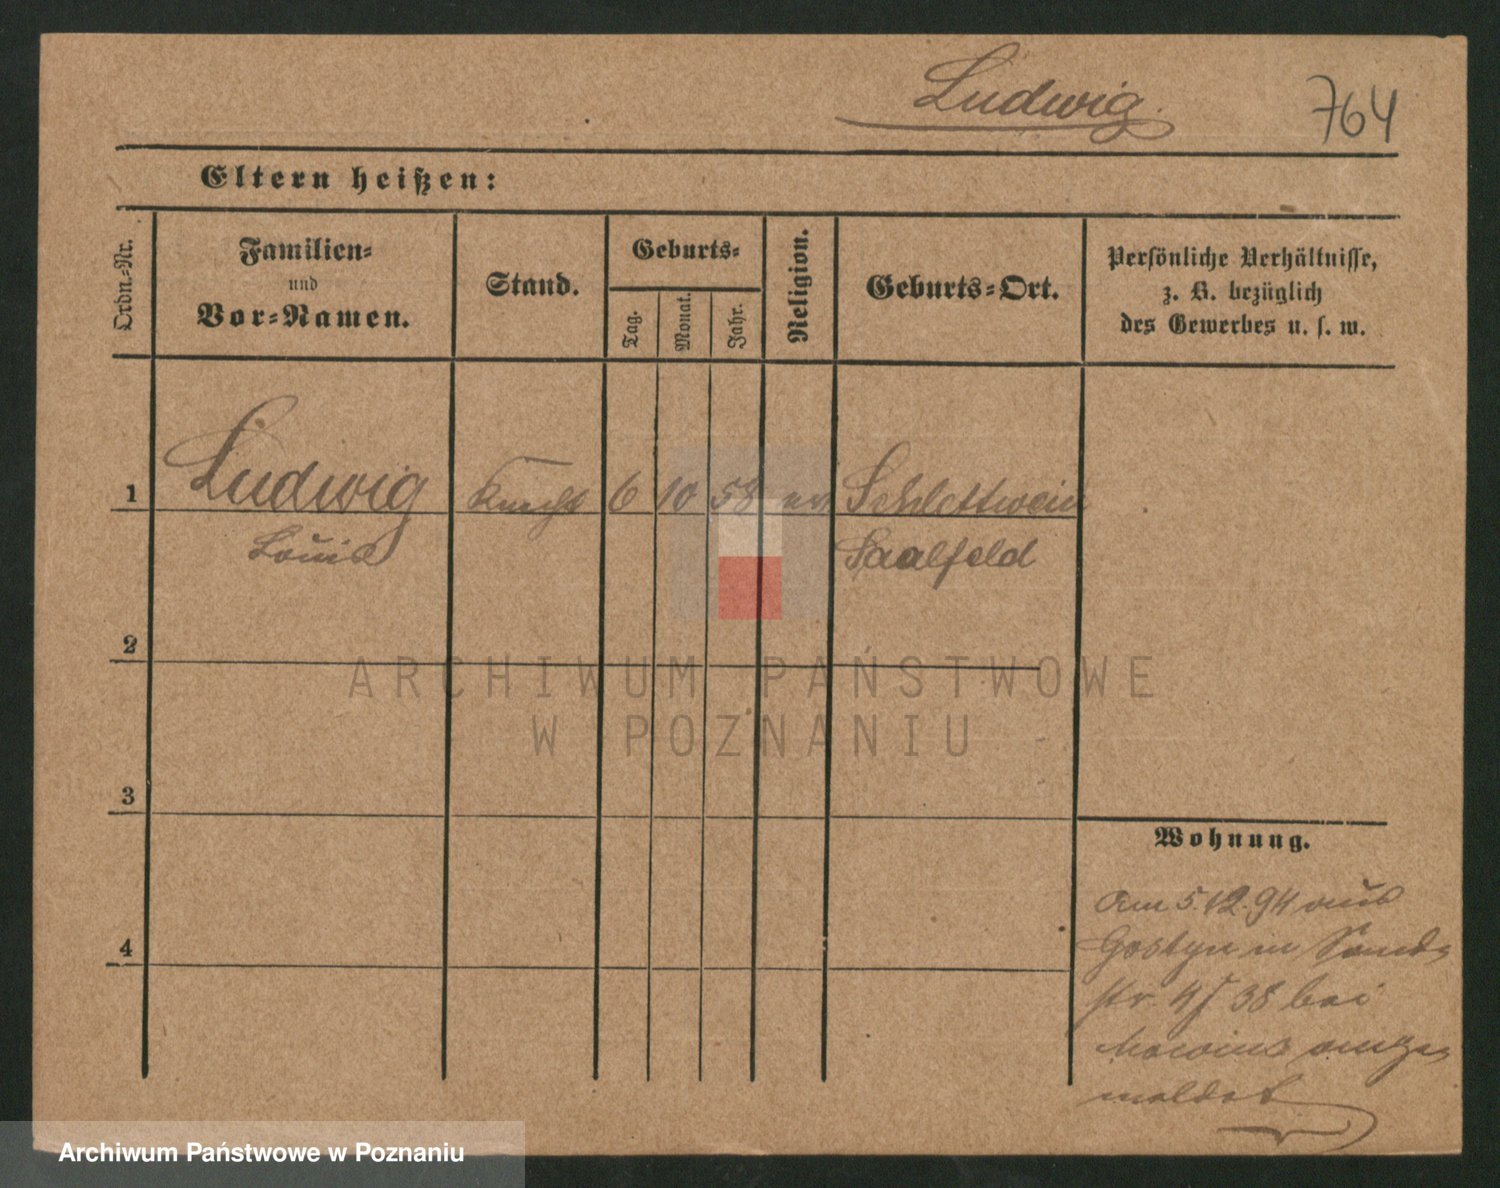 Ludwig.
764
Eltern heißen:
Ordn.-Nr.
Familien-
und
Vor-Namen.
Stand.
Geburts-
Tag.
Monat.
Jahr.
Religion.
Geburts-Ort.
Persönliche Verhältnisse,
z. B. bezüglich
des Gewerbes u. s. w.
1
Ludwig
Louis
Knecht
6
10
58
ev.
Schlettwein
Saalfeld
2
3
4
Wohnung.
Am 5.12.94 aus
Gostyn in Sand-
str. 4/ 38 bei
ange-
meldet
ARCHIWUM PAŃSTWOWE
W POZNANIU
Archiwum Państwowe w Poznaniu